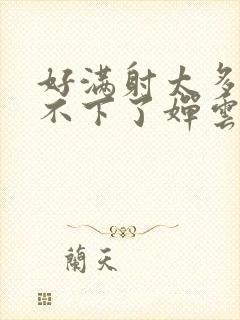 好满射太多
不下了婵雲
蘭天